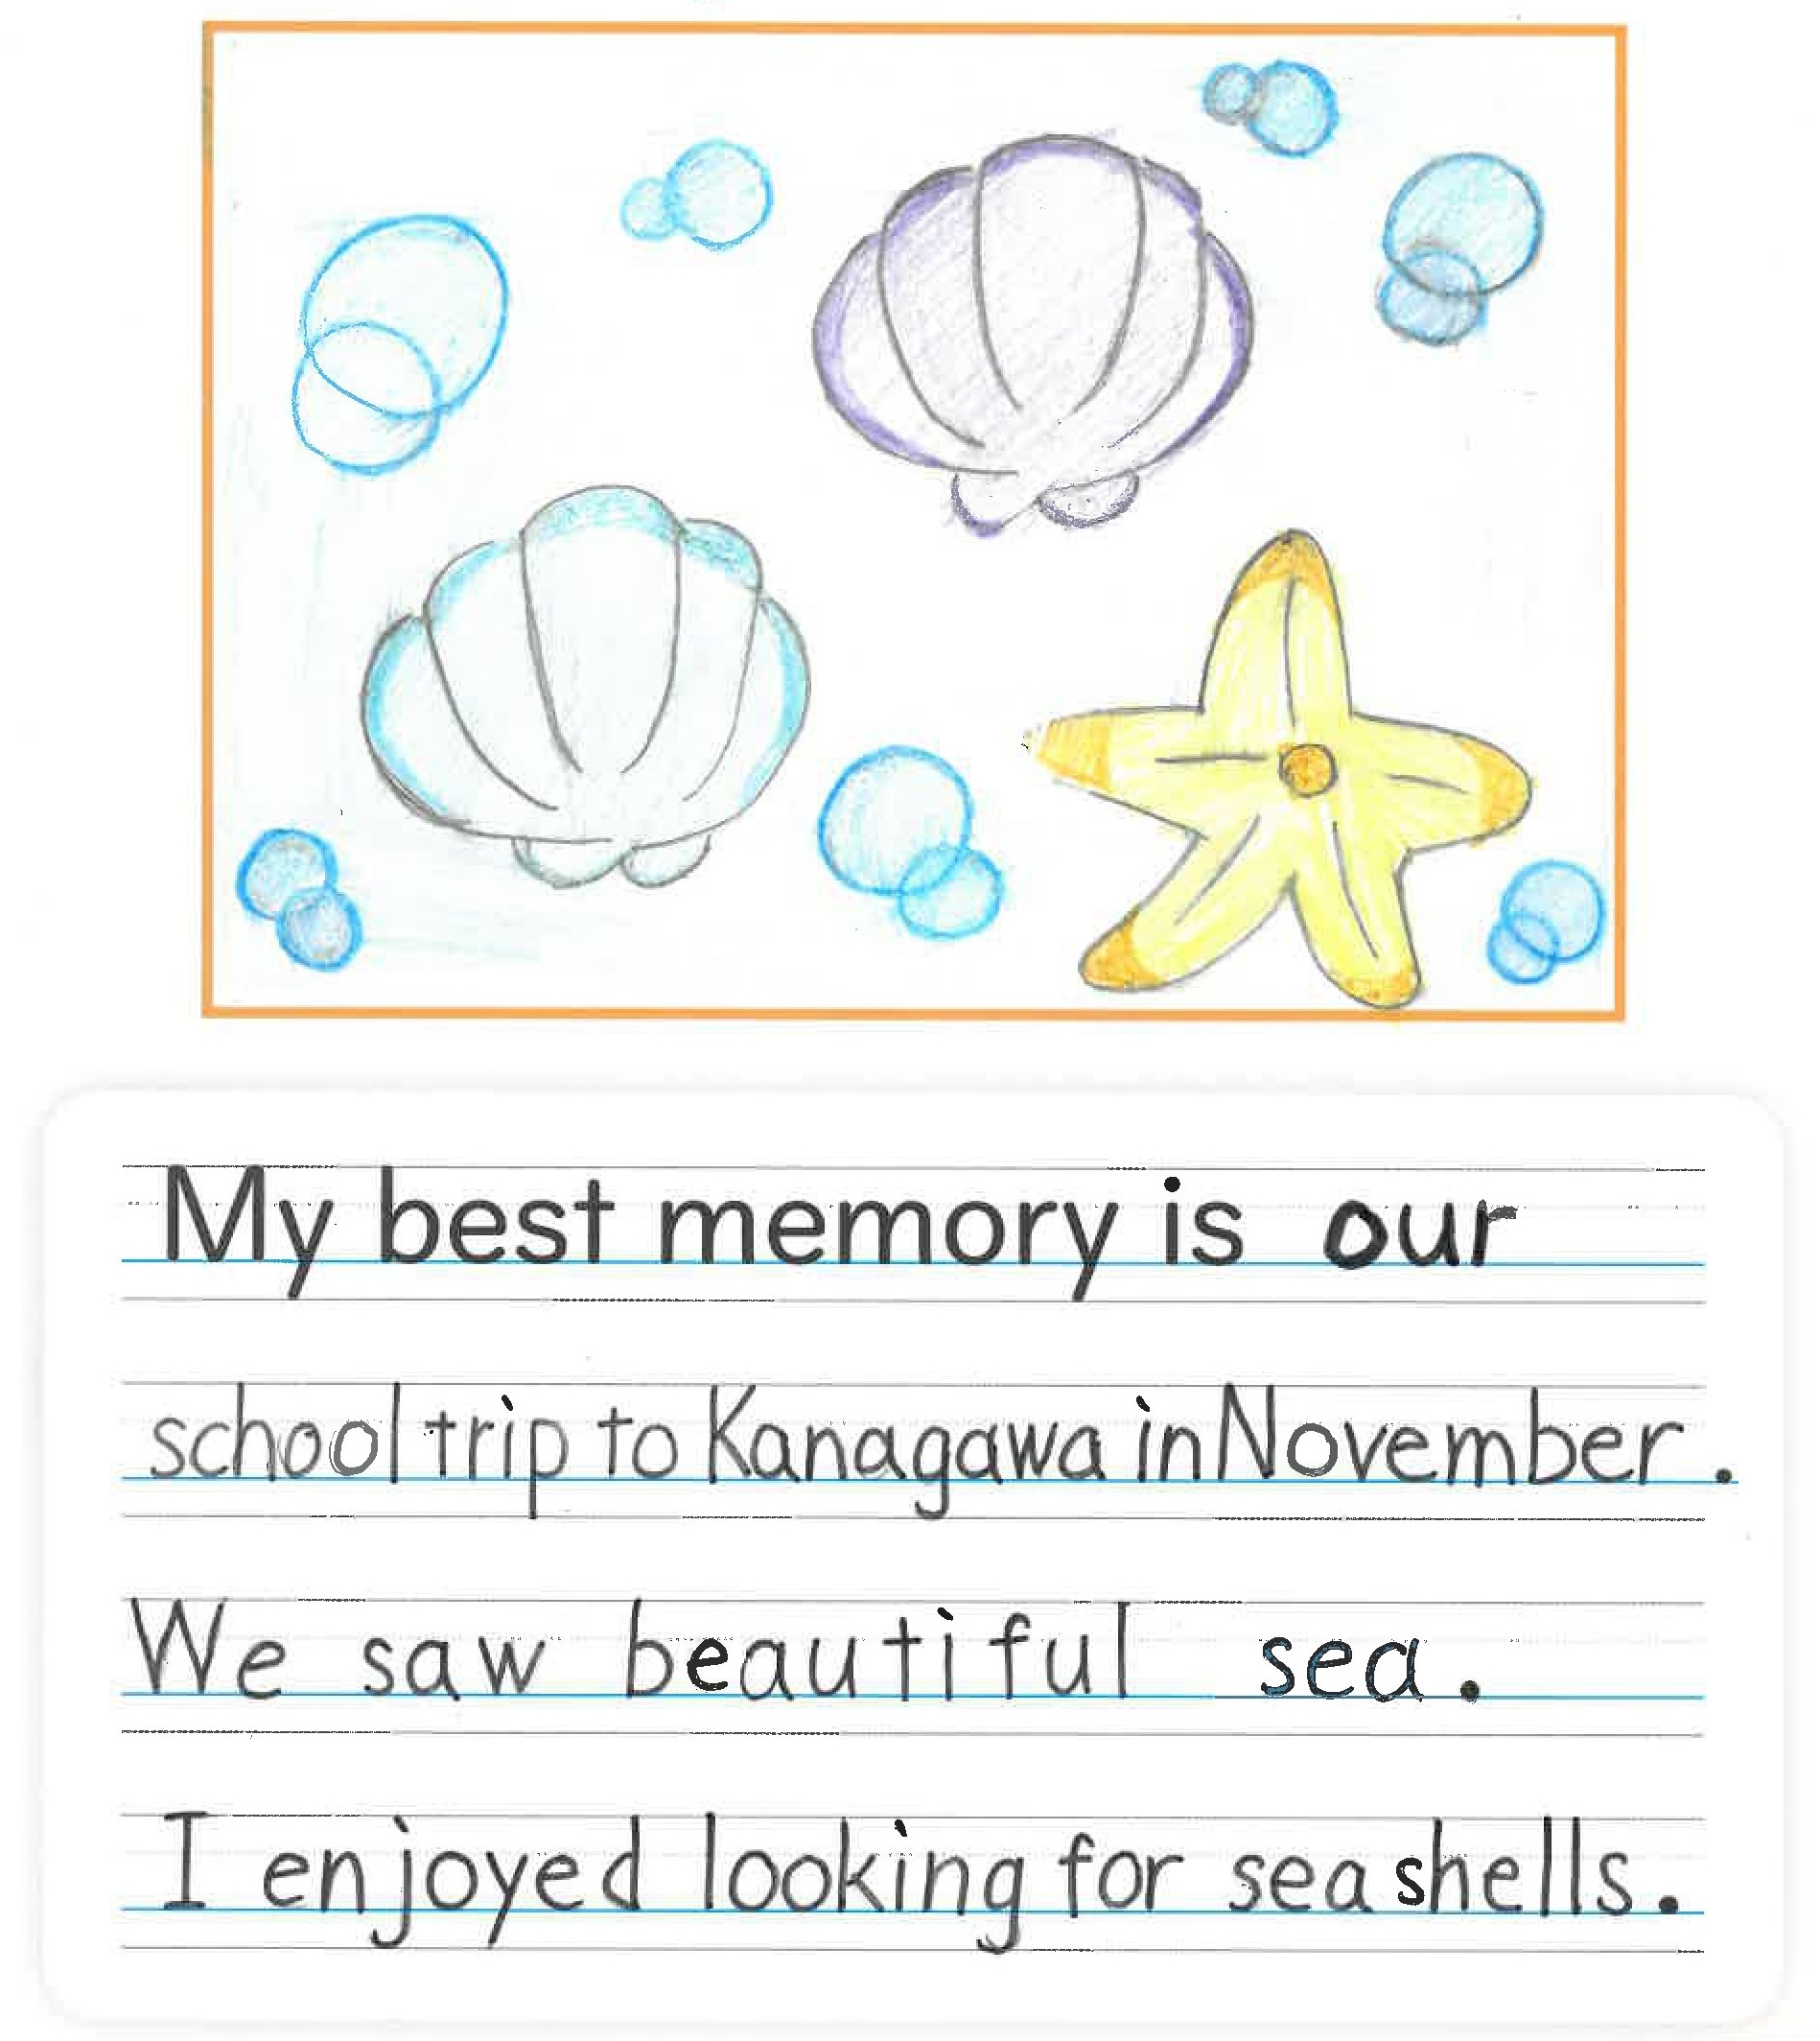 My best memory is our
school trip to Kanagawa in November.
We saw beautiful sea.
I enjoyed looking for seashells.